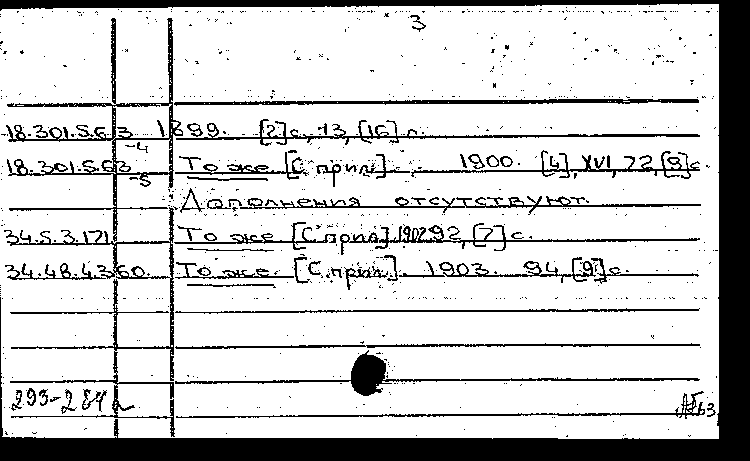 3
18.301.5.63 1899. [2]с., 73, [16] с.
-4
18.301.5.63 То же [С прил]. - 1900. [4], XVI, 72, [8]с.
-5
Дополнения отсутствуют.
34.5.3.171 То же [С прил] 1902 92, [7] с.
34.48.4.360. То же. [С прил]. 1903. 94, [9]с.
293-284